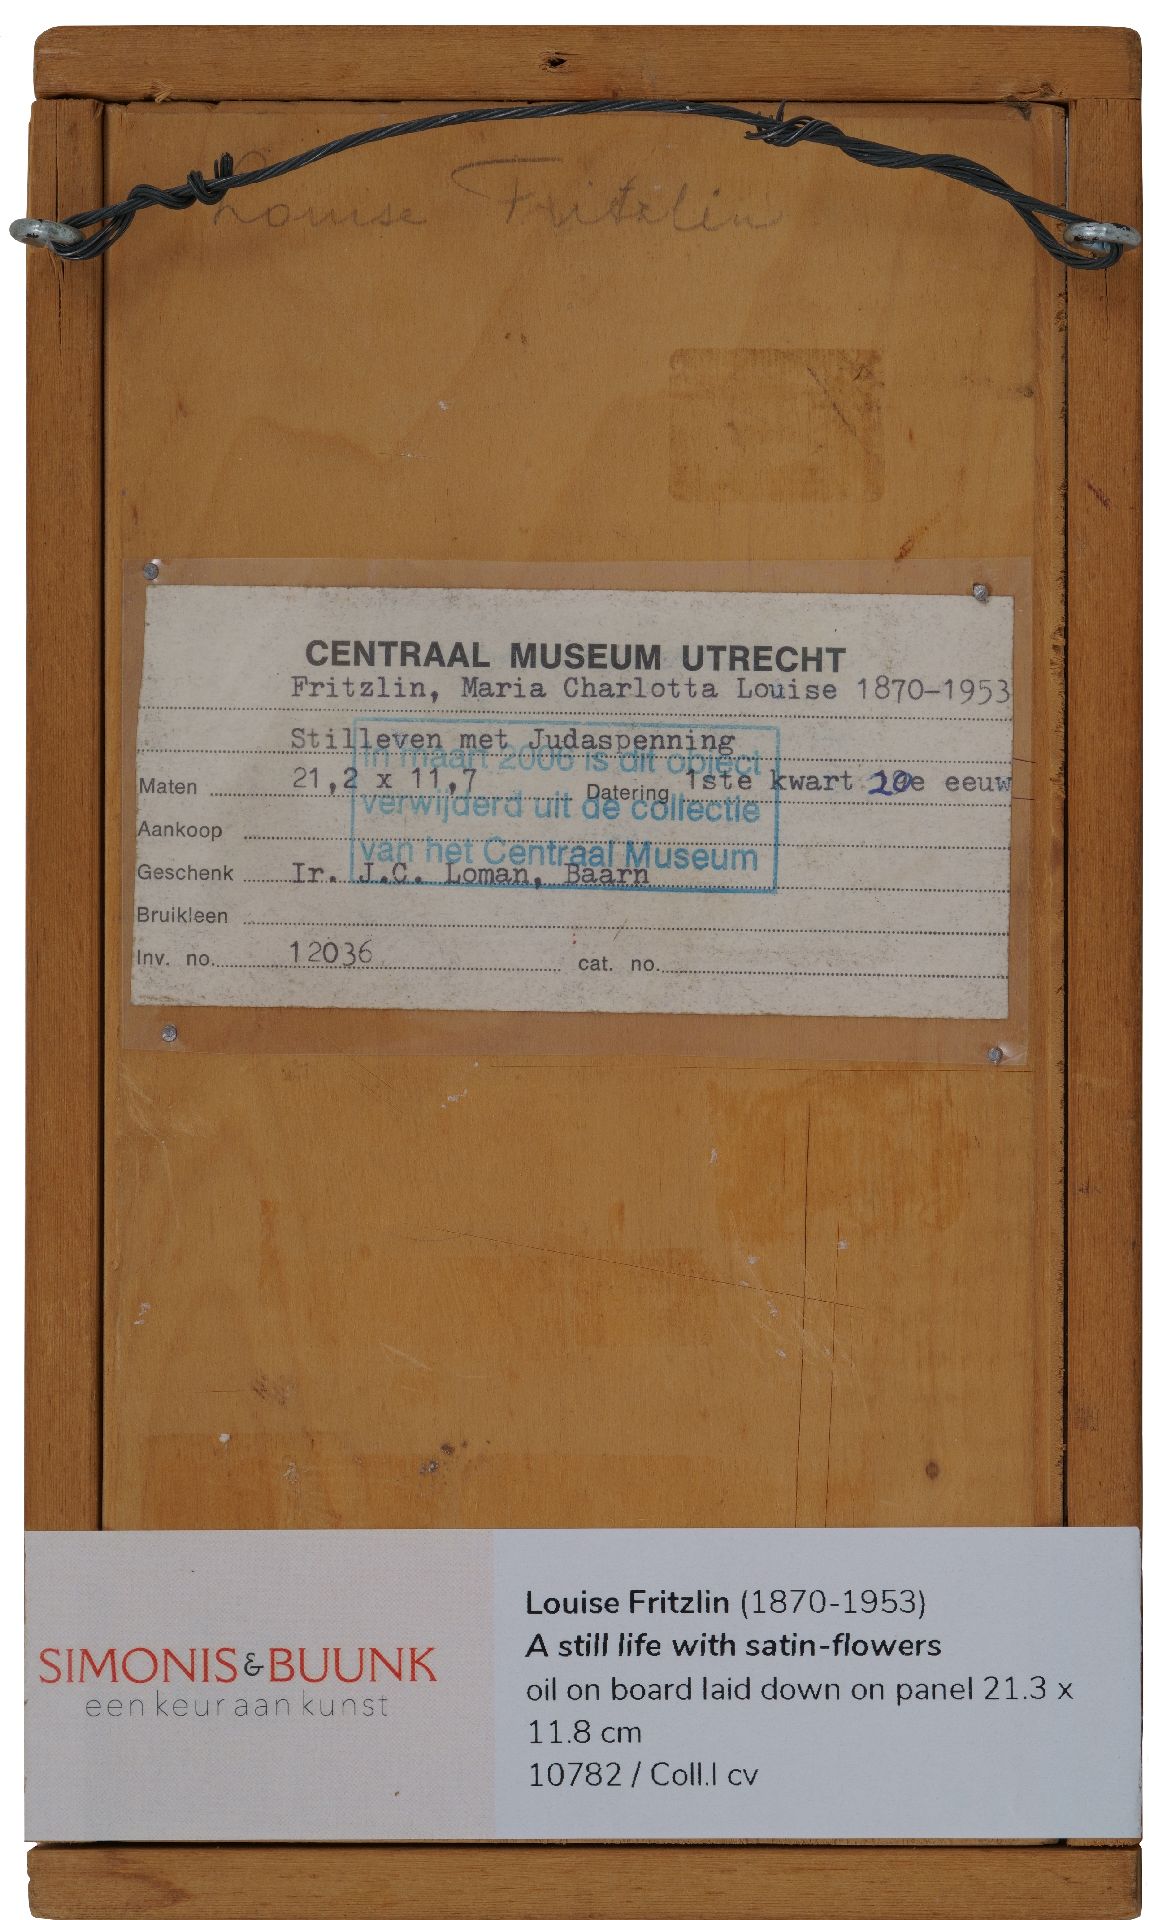 Louise Fritzlin
CENTRAAL MUSEUM UTRECHT
Fritzlin, Maria Charlotta Louise 1870-1953
Stilleven met Judaspenning
Maten 21,2 x 11,7 Datering 1ste kwart 20e eeuw
Aankoop
Geschenk Ir. J.C. Loman, Baarn
Bruikleen
Inv. no. 12036 cat. no.
In maart 2006 is dit object
verwijderd uit de collectie
van het Centraal Museum
SIMONIS & BUUNK
een keur aan kunst
Louise Fritzlin (1870-1953)
A still life with satin-flowers
oil on board laid down on panel 21.3 x
11.8 cm
10782 / Coll.I cv